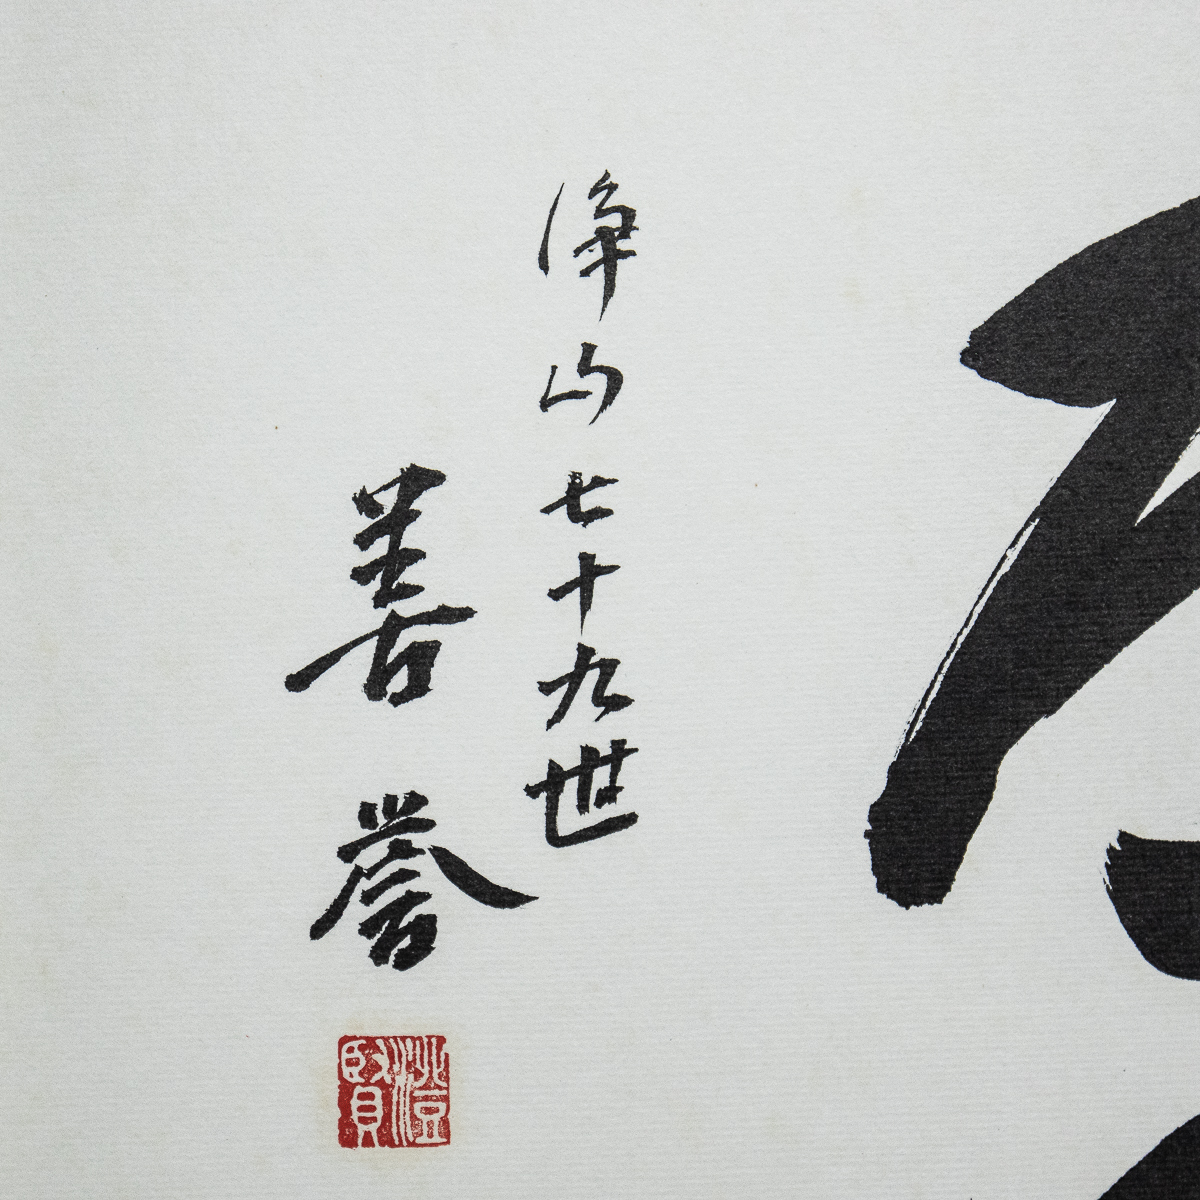 浄山七十九世
善誉
澄賢